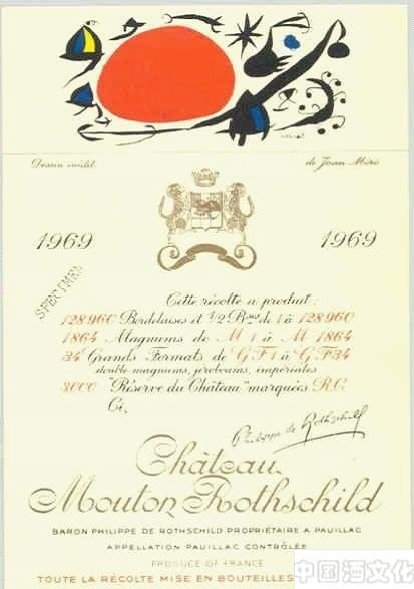 Dessin inédit de Joan Miró
1969 1969
SPECIMEN
Cette récolte a produit:
128960 Bordelaises et 1/2 Bses de 1 à 128960
1864 Magnums de M 1 à M 1864
34 Grands Formats de G F 1 à G F 34
double magnums, jeroboams, impériales
3000 "Réserve du Château" marquées R.C.
Ci,
Philippe de Rothschild
Château
Mouton Rothschild
BARON PHILIPPE DE ROTHSCHILD PROPRIÉTAIRE A PAUILLAC
APPELLATION PAUILLAC CONTRÔLÉE
PRODUCE OF FRANCE
TOUTE LA RÉCOLTE MISE EN BOUTEILLES
中国酒文化